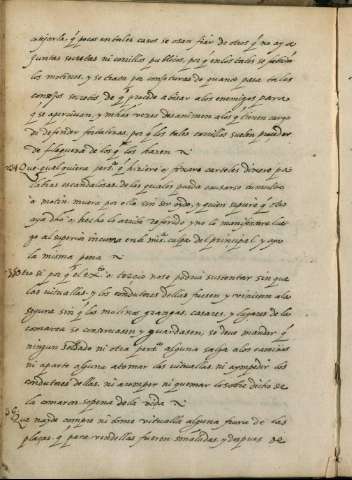 q pocos en tales casos se osen fiar de otros q no aya
juntas secretas ni corrillos publicos, por q en los tales se
los motines, y se trata por conjeturas de quanto pasa en los
consejos secretos de q procede avisar a los enemigos para
q se aperciban, y muchas vezes desanimar a los q tienen cargo
de defender fortalezas, por q los tales corrillos suelen proceder
de flaqueza de los q los hazen
Que qualquiera pers.a q hiziere o fixare carteles dixere pa
labras escandalosas de las quales pueda causarse tumulto
o motin muera por ello sin ser oydo, y quien supiere q otro
aya dho o hecho lo arriba referido y no lo manifestare lue
go al superior incurra en la mis.a culpa del principal y aya
la misma pena
si por q el ex.to o tercio no se podria sustentar sin que
las vituallas, y los conductores dellas fuesen y viniesen a la
segura sin q los molinos, granjas, casares, y lugares de la
comarca se conservasen y guardasen, se deve mandar q
ningun soldado ni otra pers.a alguna salga a los caminos
ni aparte alguna a tomar las vituallas ni a ympedir los
conductores dellas, ni a romper ni quemar lo sobre dicho de
la comarca sopena de la vida
Que nayde compre ni tome vitualla alguna fuera de las
plaças q para vendellas fueren señaladas, y despues de